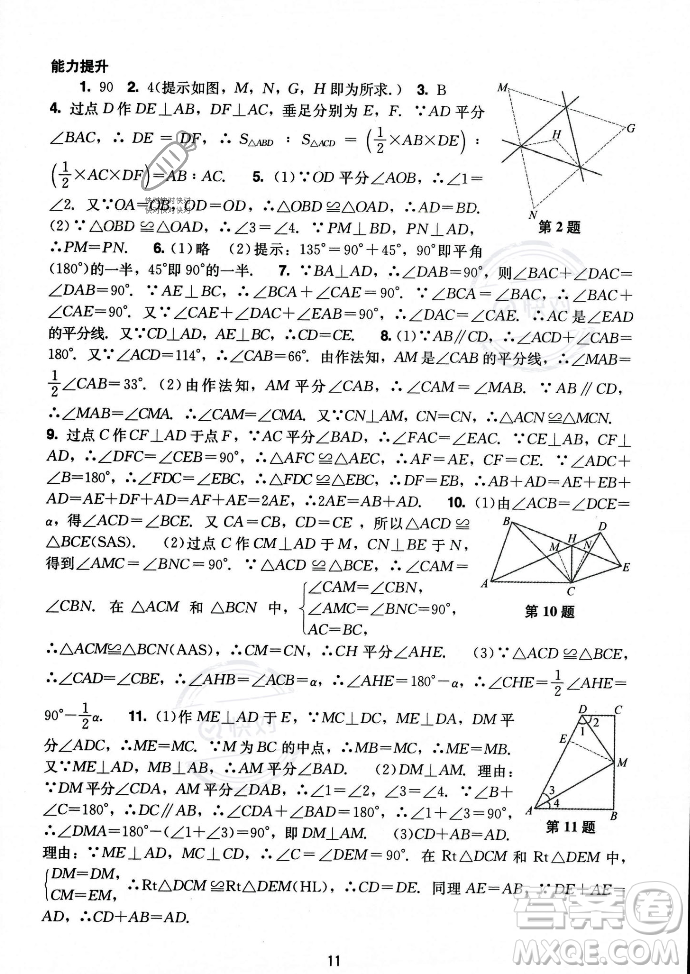 能力提升
1. 90 2. 4(提示如图，M，N，G，H 即为所求.) 3. B
4. 过点 D 作 DE⊥AB，DF⊥AC，垂足分别为 E，F. ∵AD 平分
∠BAC，∴DE = DF，∴S△ABD : S△ACD = (1/2×AB×DE) :
(1/2×AC×DF)=AB : AC. 5. (1)∵OD 平分∠AOB，∴∠1=
∠2. 又∵OA=OB，OD=OD，∴△OBD≌△OAD，∴AD=BD.
(2)∵△OBD≌△OAD，∴∠3=∠4. ∵PM⊥BD，PN⊥AD，
∴PM=PN. 6. (1)略 (2)提示：135°=90°+45°，90°即平角
(180°)的一半，45°即 90°的一半. 7. ∵BA⊥AD，则∠BAC+
∠DAB=90°. ∵AE⊥BC，∴∠BCA+∠CAE=90°，∴∠BAC=
90°. 又∵∠CAE+∠DAC=90°，∴∠CAE=∠DAC，∴AC 是∠EAD
的平分线. 又∵CD⊥AD，AE⊥BC，∴CD=CE. 8. (1)∵AB∥CD，∴∠ACD+∠CAB=
180°. 又∵∠ACD=114°，∴∠CAB=66°. 由作法知，AM 是∠CAB 的平分线，∴∠MAB=
1/2∠CAB=33°. (2)由作法知，AM 平分∠CAB，∴∠CAM=∠MAB. 又∵AB∥CD，
∴∠MAB=∠CMA，∴∠CAM=∠CMA. 又∵CN⊥AM，CN=CN，∴△ACN≌△MCN.
9. 过点 C 作 CF⊥AD 于点 F，∵AC 平分∠BAD，∴∠FAC=∠EAC. ∵CE⊥AB，CF⊥
AD，∴∠DFC=∠CEB=90°，∴△AFC≌△AEC，∴AF=AE，CF=CE. ∵∠ADC+
∠B=180°，∴∠FDC=∠EBC，∴△FDC≌△EBC，∴DF=EB，∴AB+AD=AE+EB+
AD=AE+DF+AD=AF+AE=2AE，∴2AE=AB+AD. 10. (1)由∠ACB=∠DCE=
α，得∠ACD=∠BCE. 又 CA=CB，CD=CE，∴△ACD≌
△BCE(SAS). (2)过点 C 作 CM⊥AD 于 M，CN⊥BE 于 N，
得到∠AMC=∠BNC=90°. ∵△ACD≌△BCE，∴∠CAM=
∠CBN. 在 △ACM 和 △BCN 中，{∠CAM=∠CBN，
∠AMC=∠BNC=90°，
AC=BC，
∴△ACM≌△BCN(AAS)，∴CM=CN，∴CH 平分∠AHE. (3)∵△ACD≌△BCE，
∴∠CAD=∠CBE，∴∠AHB=∠ACB=α，∴∠AHE=180°-α，∴∠CHE=1/2∠AHE=
90°-1/2α. 11. (1)作 ME⊥AD 于 E，∵MC⊥DC，ME⊥DA，DM 平
分∠ADC，∴ME=MC. ∵M 为 BC 的中点，∴MB=MC=ME.
又∵ME⊥AD，MB⊥AB，∴AM 平分∠DAB. (2)AM⊥DM. 理由：
∵DM 平分∠CDA，AM 平分∠DAB，∴∠1=∠2，∠3=∠4. ∵∠B+
∠C=180°，∴DC∥AB，∴∠CDA+∠BAD=180°，∴∠1+∠3=90°，
∴∠DMA=180°-(∠1+∠3)=90°，即 DM⊥AM. (3)CD+AB=AD.
理由：∵ME⊥AD，MC⊥CD，∴∠C=∠DEM=90°. 在 Rt△DCM 和 Rt△DEM 中，
{DM=DM，
EM=CM，∴Rt△DCM≌Rt△DEM(HL)，∴CD=DE. 同理 AE=AB，∵AE+DE=AD，
∴CD+AB=AD.
M
G
H
N
第 2 题
B
D
H
M
N
E
A
C
第 10 题
D
C
2
1
E
M
3
4
A
B
第 11 题
快对快对快对
快对快对快对
答案圈
MXQE.COM
11